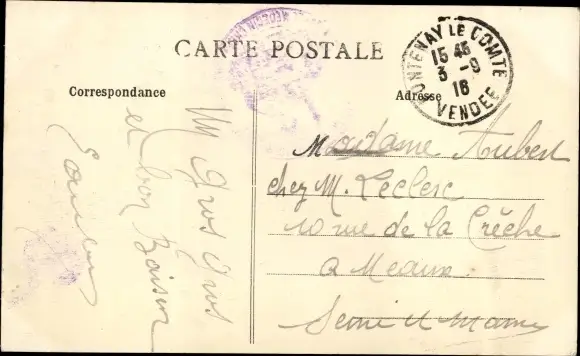 CARTE POSTALE
Correspondance
Adresse
FONTENAY LE COMTE
15 45
3 - 9
16
VENDEE
Un Gros Gros
et bon Baiser
Madame Aubert
chez M. Leclerc
10 rue de la Crèche
a Meaux
Seine et Marne